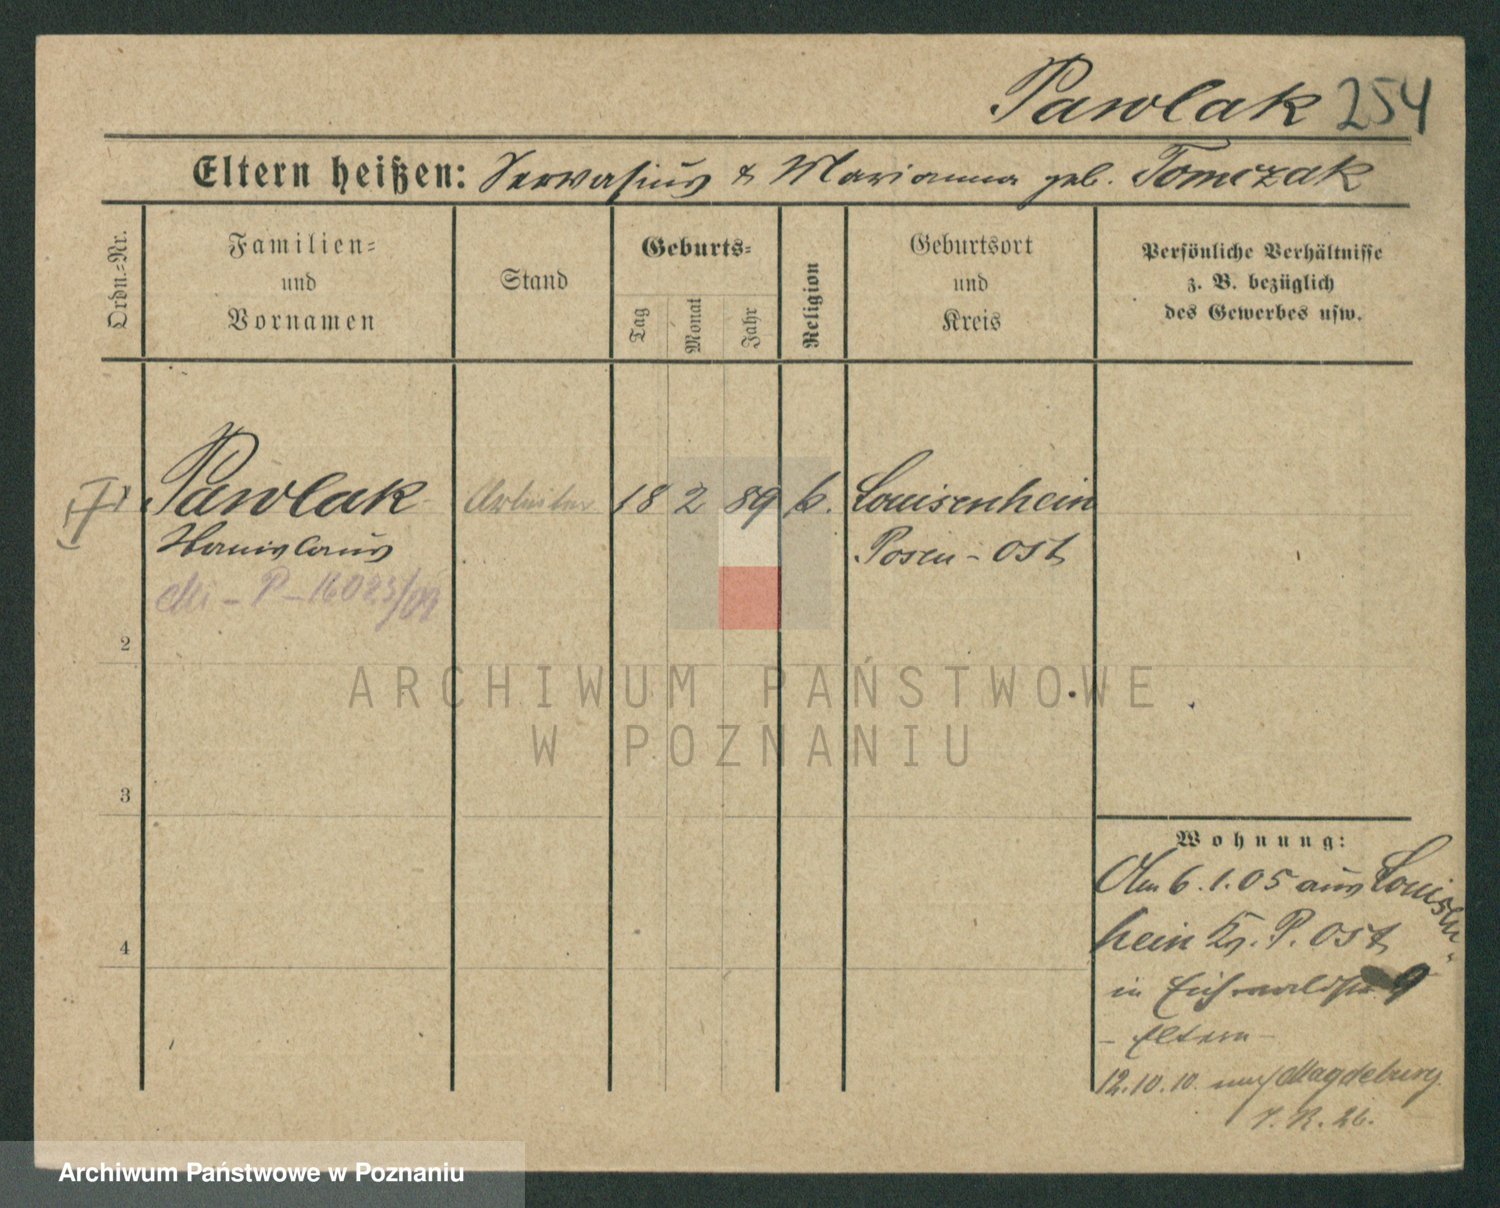 Pawlak 254
Eltern heißen: Servasius & Marianna geb. Tomczak
Ordn.-Nr.
Familien-
und
Vornamen
Stand
Geburts-
Tag
Monat
Jahr
Religion
Geburtsort
und
Kreis
Persönliche Verhältnisse
z. B. bezüglich
des Gewerbes usw.
Pawlak
Arbeiter
18 2 89 k. Louisenhein
Stanislaus
Posen-Ost
Mi-P-16023/09
2
3
4
Wohnung:
Am 6.1.05 aus Louisen-
hein Kr. P. Ost
in Eichwaldstr. 9
- Eltern -
12.10.10. nach Magdeburg
ARCHIWUM PAŃSTWOWE
W POZNANIU
Archiwum Państwowe w Poznaniu